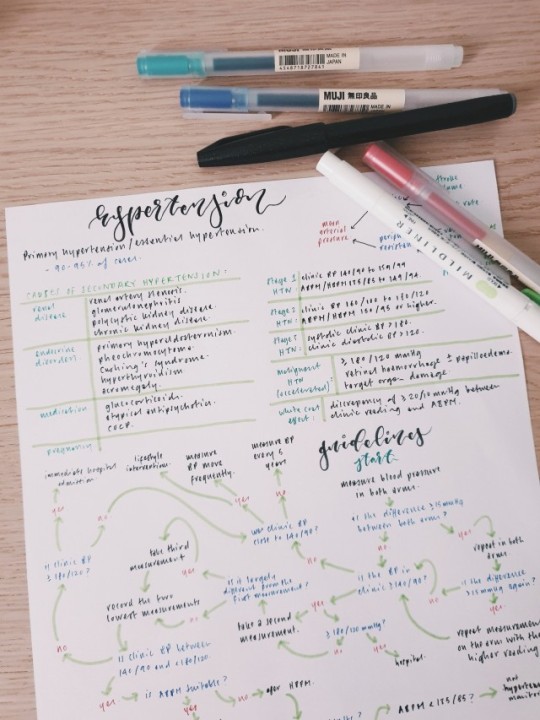 MUJI
MADE IN
JAPAN
MUJI 無印良品
MADE IN
MILDLINER
hypertension
Primary hypertension/essential hypertension.
- 90-95% of cases.
mean
arterial
pressure
CAUSES OF SECONDARY HYPERTENSION:
renal
disease
renal artery stenosis.
glomerulonephritis
polycystic kidney disease.
chronic kidney disease.
endocrine
disorders
primary hyperaldosteronism.
pheochromocytoma.
Cushing's syndrome.
hyperthyroidism
acromegaly.
medication
glucocorticoids.
atypical antipsychotics.
COCP.
pregnancy
Stage 1
HTN:
clinic BP 140/90 to 159/99
ABPM/HBPM 135/85 to 149/94.
Stage 2
HTN:
clinic BP 160/100 to 180/120
ABPM/HBPM 150/95 or higher.
HTN:
systolic clinic BP >180.
clinic diastolic BP >120.
malignant
HTN
(accelerated):
≥180/120 mmHg
retinal haemorrhage ± papilloedema.
target organ damage
white coat
effect:
discrepancy of ≥20/10 mmHg between
clinic reading and ABPM.
guidelines
start.
measure blood pressure
in both arms.
is the difference ≥15mmHg
between both arms?
no
yes
repeat in both
arms.
is the difference
≥15mmHg again?
no
yes
repeat measurement
on the arm with the
higher reading
is the BP in
clinic ≥140/90?
no
yes
take a second
measurement.
≥180/120 mmHg?
no
yes
hospital.
is it largely
different from the
first measurement?
yes
no
take third
measurement
record the two
lowest measurements
was clinic BP
close to 140/90?
yes
no
measure BP
every 5
years
measure
BP more
frequently.
lifestyle
intervention.
immediate hospital
admission
yes
no
is clinic BP
≥180/120?
no
is clinic BP between
140/90 and <180/120
yes
is ABPM suitable?
no
offer HBPM.
yes
ABPM <135/85?
yes
not